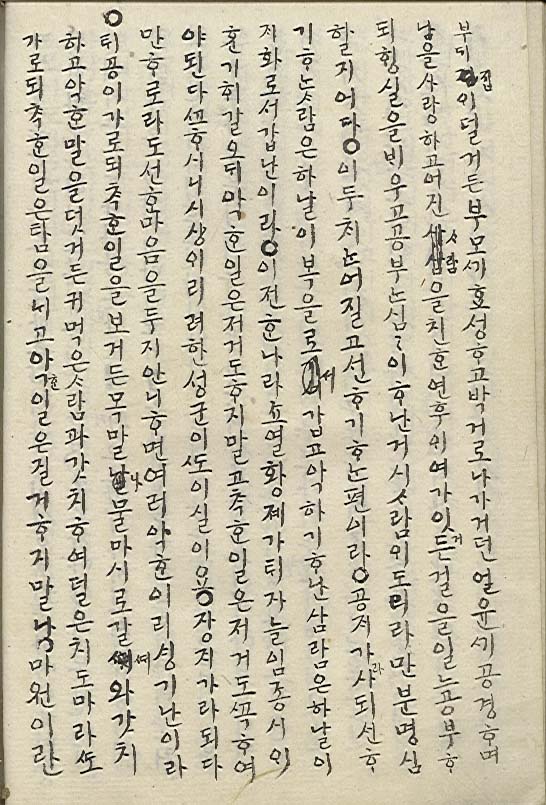 부디 집의 덜거든 부모세 효성ᄒᆞ고 박거로 나가거던 얼윤세 공경ᄒᆞ며
남을 사랑하고 어진 사람을 친ᄒᆞᆫ 연후의 여가 잇거든 걸을 일ᄂᆞᆫ 공부ᄒᆞ
되 ᄒᆡᆼ실을 비우고 공부ᄂᆞᆫ 심심이 ᄒᆞ난 거시 사람의 도리라 만분명심
할지어다○이두치ᄂᆞᆫ 어질고 선ᄒᆞ기 ᄒᆞᄂᆞᆫ 편이라○공ᄌᆞ가라사되 선ᄒᆞ
기ᄒᆞᄂᆞᆫ ᄉᆞ람은 하날이 복을로써 갑고 악하기 ᄒᆞ난 삼람은 하날이
지화로서 갑난이라○이전 ᄒᆞᆫ나라 효열황제가 ᄐᆡ자늘 임종시의
갈오ᄃᆡ 악ᄒᆞᆫ일은 저거도 ᄒᆞ지말고 축ᄒᆞᆫ일은 저거도 ᄒᆞ여
야된다 ᄒᆞ시니 시상의 리려한 성군이 ᄯᅩ 이실이요○장지가라되 다
만ᄒᆞ로라도 선ᄒᆞᆫ마음을 두지 안니ᄒᆞ면 여러 악ᄒᆞᆫ이리 싱기난이라
○ᄐᆡ공이 가로되 축ᄒᆞᆫ일을 보거든 목말나 물마시로 갈여와 갓치
하고 악ᄒᆞᆫ말을 덧거든 귀먹은 ᄉᆞ람과 갓치 ᄒᆞ여 덜은치도 마라 ᄯᅩ
가로되 축ᄒᆞᆫ일은 탐을 ᄂᆡ고 악ᄒᆞᆫ일은 질거ᄒᆞ지말나○마원이란